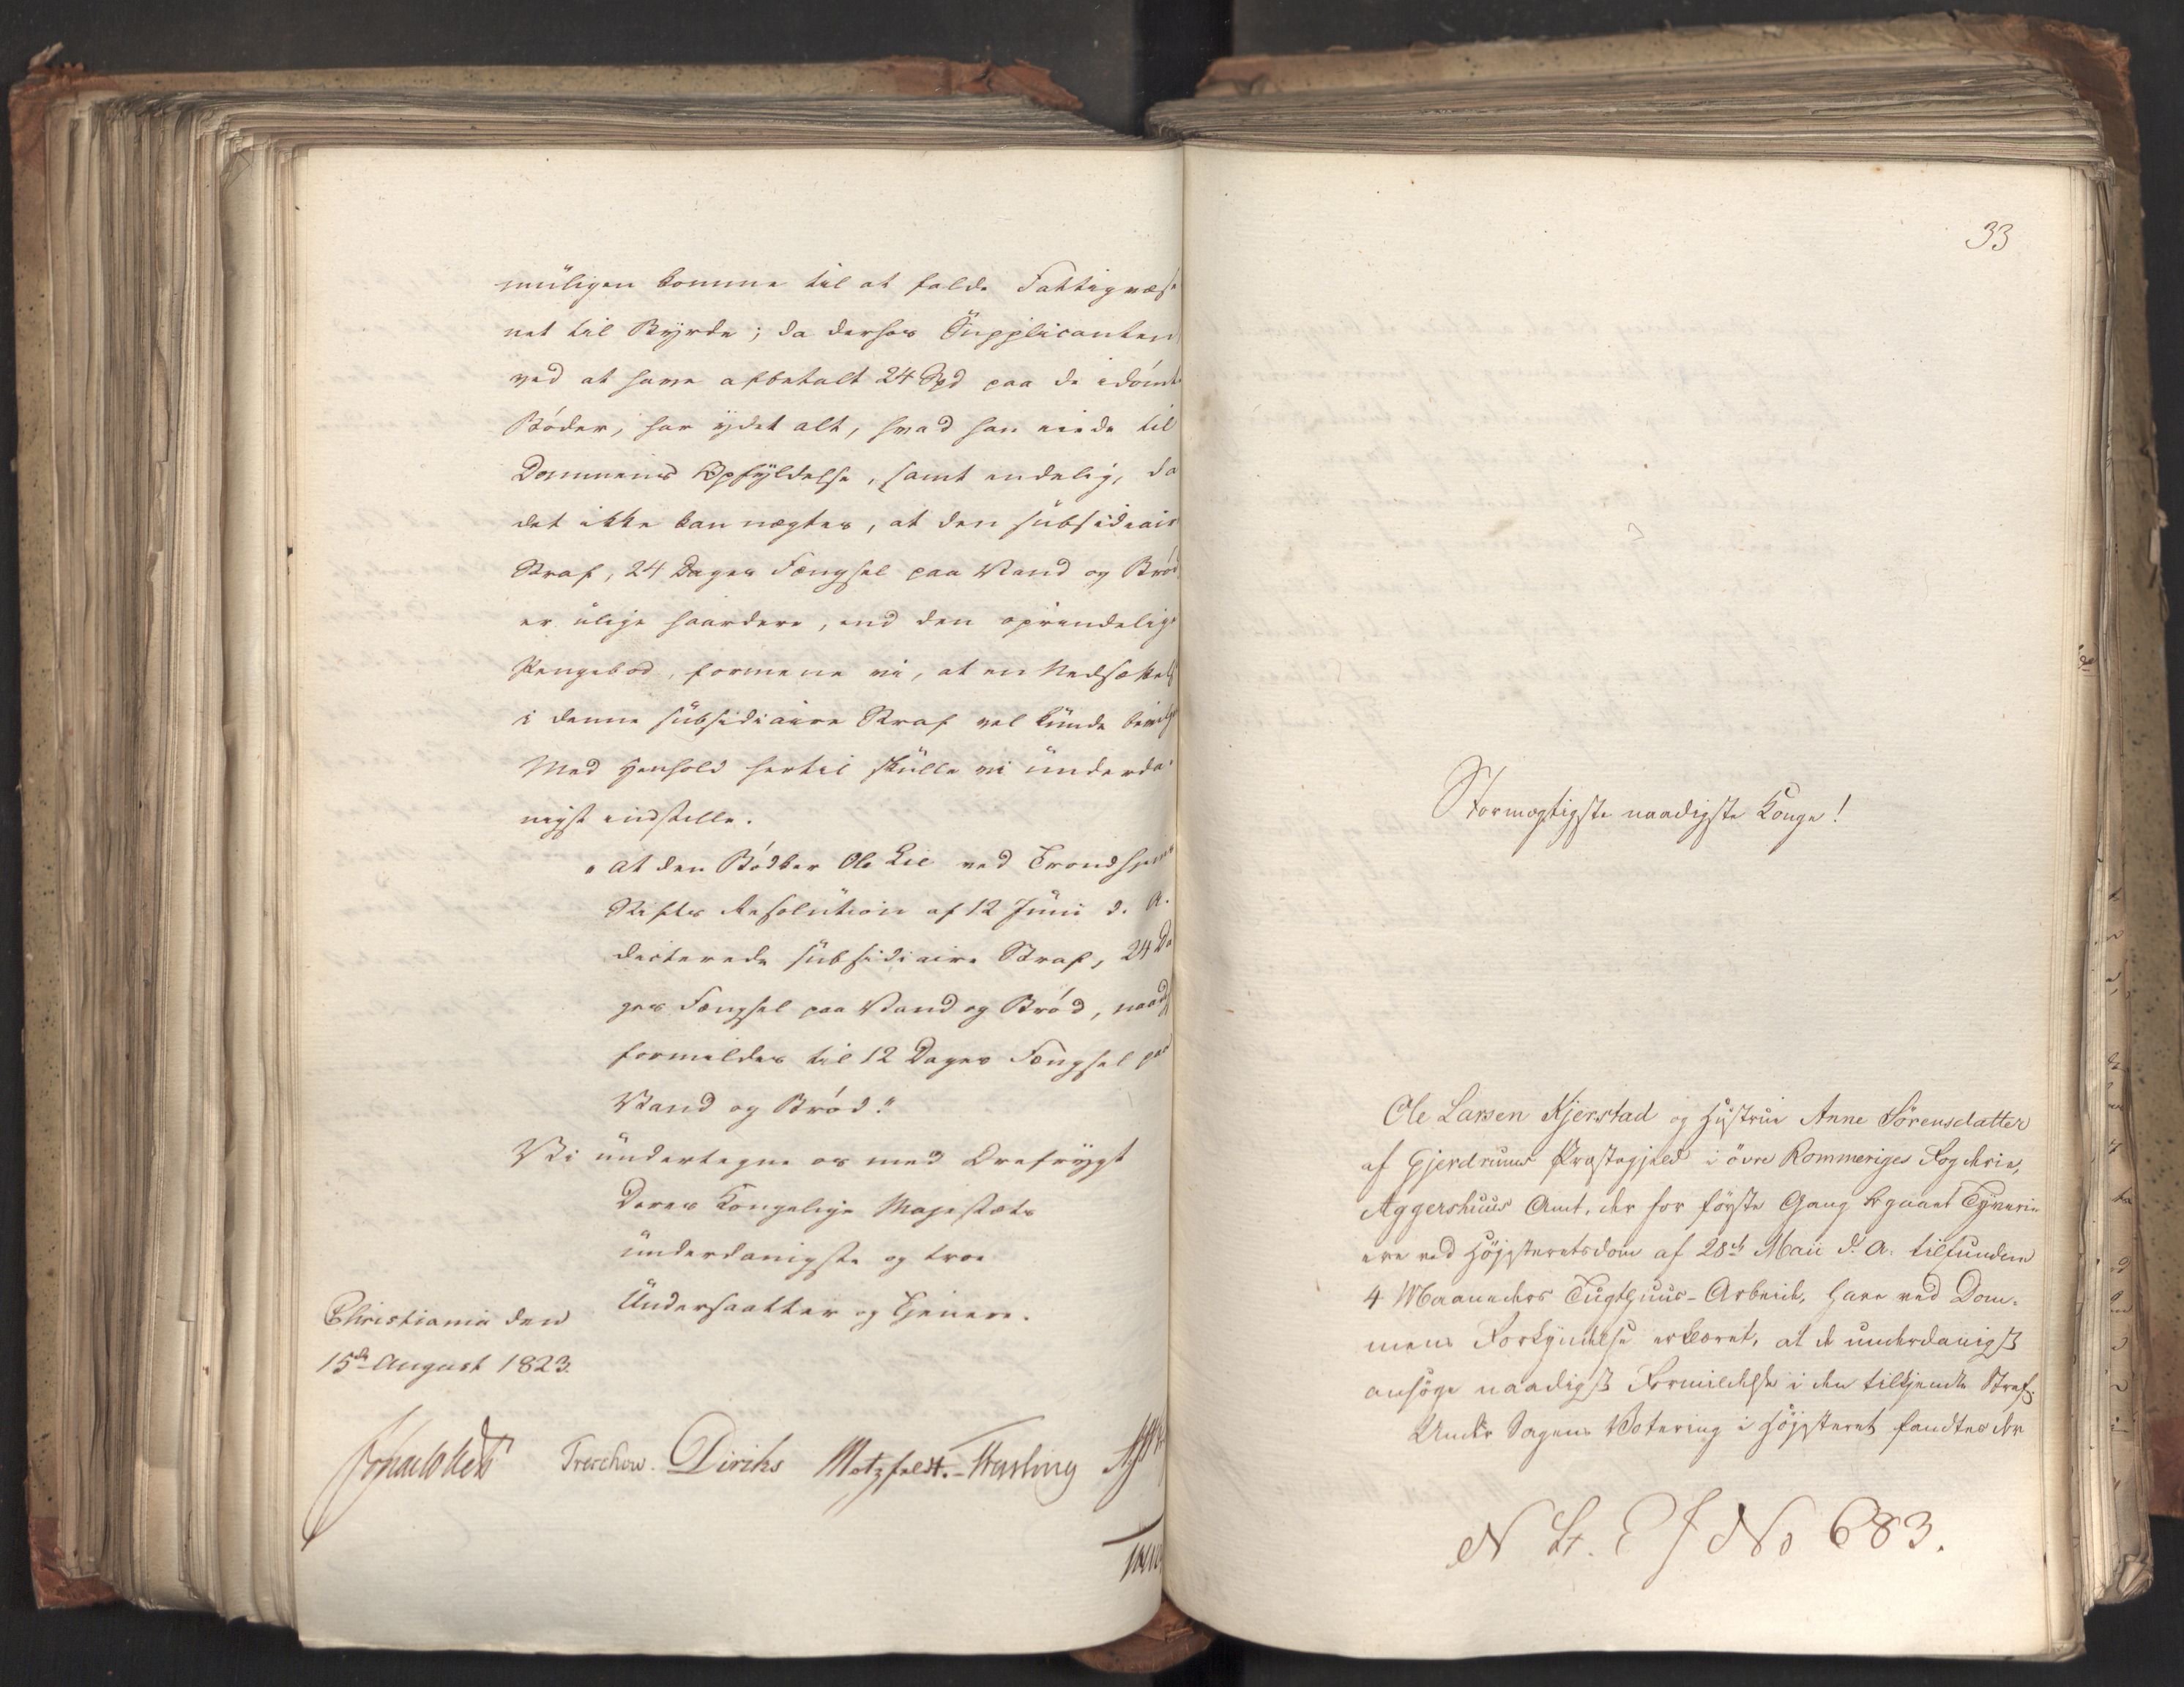 müligen komme til at falde Fattigvæse
net til Byrde; da derhos Süpplicanten
ved at have afbetalt 24 Spd paa de idömte
Böder, har ydet alt, hvad han eiede til
Dommens Opfyldelse, samt endelig, da
det ikke kan nægtes, at den sübsidiair
Straf, 24 Dages Fængsel paa Vand og Bröd
er ulige haardere, end den oprindelige
Pengebod, formene vi, at en Nedsættels
i denne sübsidiaire Straf vel künde bevilge
Med Henhold hertil skülle vi ünderda-
nigst indstille.
"at den Bödker Ole Lie ved Trondhjems
Stifts Resolütion af 12 Jünii d. A.
dicterede sübsidiaire Straf, 24 Da
ges Fængsel paa Vand og Bröd, naadigst
formildes til 12 Dages Fængsel paa
Vand og Bröd."
Vi ündertegne os med Ærefrygt
Deres Kongelige Majestæts
ünderdanigste og troe
Ündersaatter og Tjenere.
Christiania den
15de August 1823.
Treschow. Diriks Motzfeldt.
33
Stormægtigste naadigste Konge!
Ole Larsen Kjerstad og Hustrue Anne Sörensdatter
af Gjerdrums Præstegjeld i övre Rommeriges Fogderie,
Aggershuus Amt, der for förste Gang begaaet Tyverie
ere ved Höjesteretsdom af 28de Maii d. A. tilfundne
4 Maaneders Tugthuus-Arbeide, have ved Dom-
mens Forkyndelse erklæret, at de underdanigst
ansöge naadigst Formildelse i den tilkjendte Straf.
Under Sagens Votering i Höjesteret fandtes der
No 683.